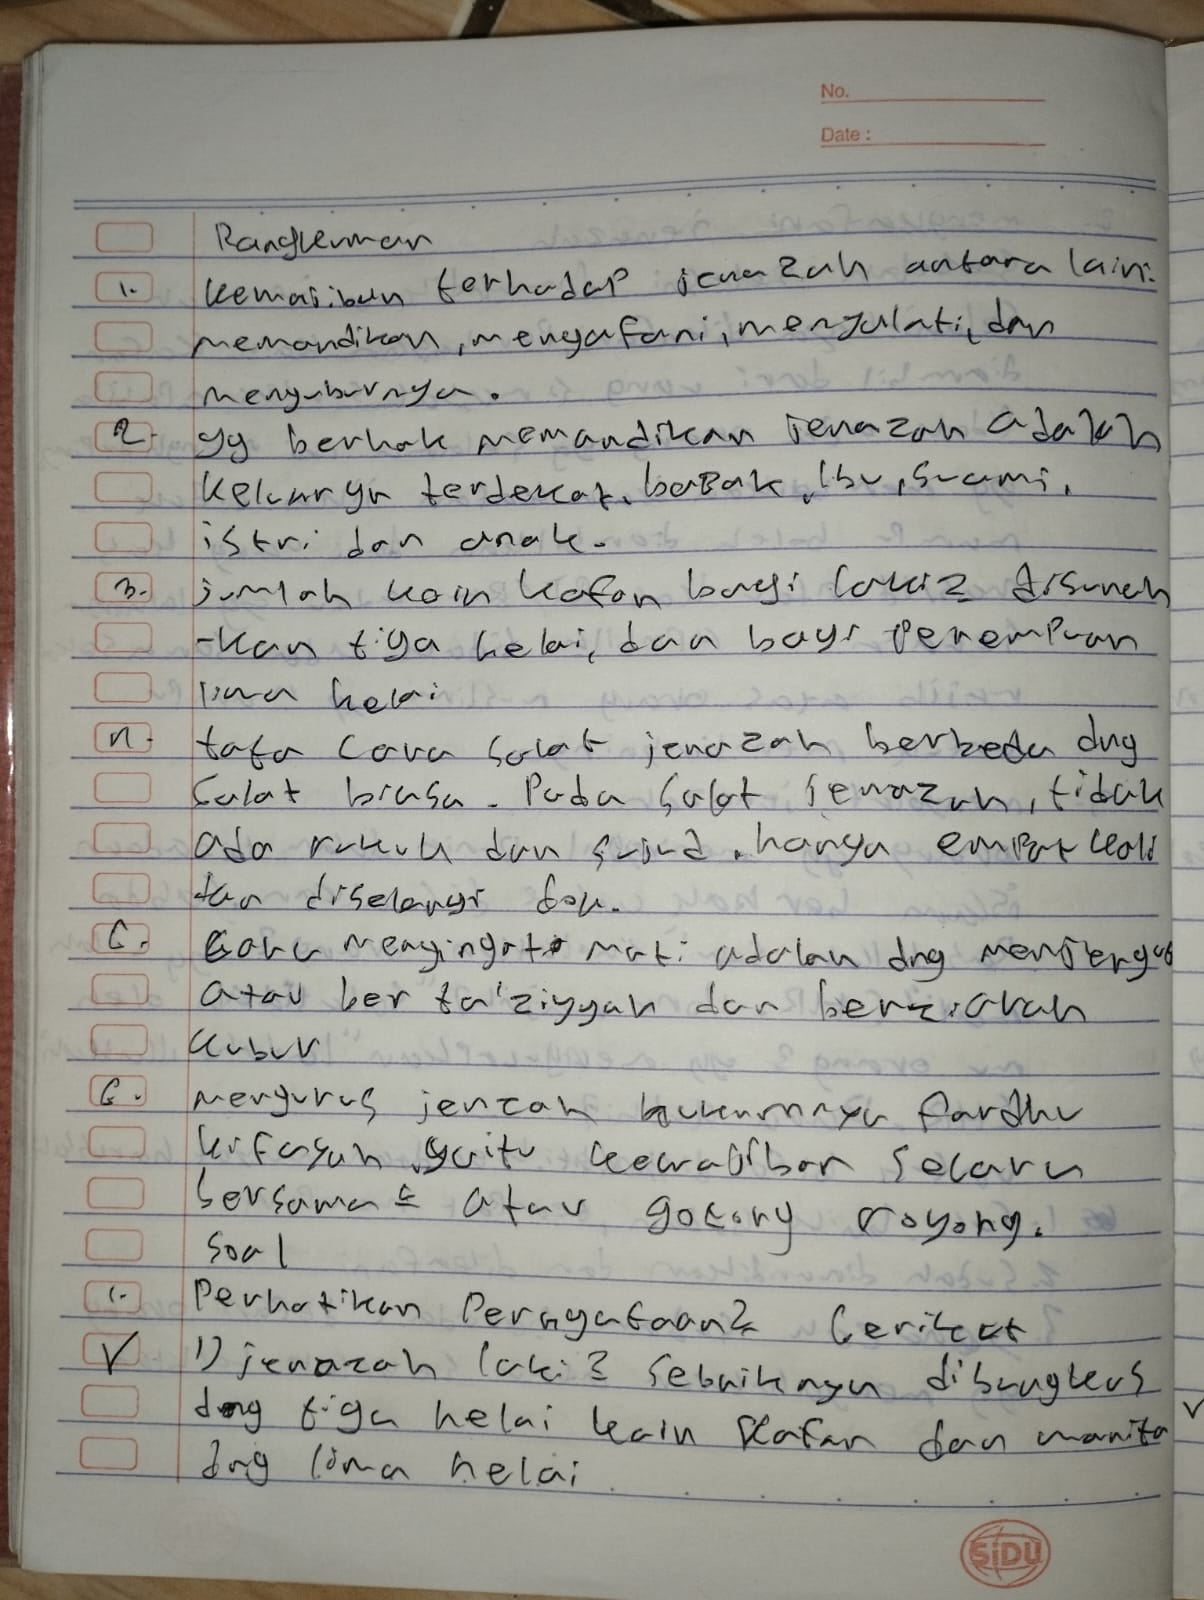 No.
Date :
Rangkuman
1. kewajiban terhadap jenazah antara lain:
memandikan, mengafani, menyalati, dan
menguburnya.
2. yg berhak memandikan jenazah adalah
keluarga terdekat. bapak, ibu, suami,
istri dan anak.
3. jumlah kain kafan bagi laki2 disunah
-kan tiga helai, dan bagi perempuan
lima helai
4. tata cara salat jenazah berbeda dng
salat biasa. Pada salat jenazah, tidak
ada rukuk dan sujud. hanya empat kali
dan diselangi doa.
5. cara mengingat mati adalah dng menjenguk
atau ber ta'ziyyah dan berziarah
kubur
6. mengurus jenzah hukumnya fardhu
kifayah yaitu kewajiban secara
bersama2 atau gotong royong.
Soal
1. Perhatikan Pernyataan2 berikut
V 1) jenazah laki2 sebaiknya dibungkus
dng tiga helai kain kafan dan wanita
dng lima helai
SiDU